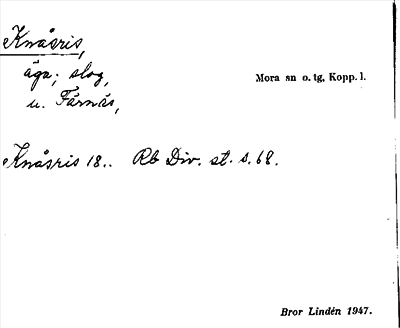 Knåsris,
äga; slog,
Mora sn o. tg, Kopp. l.
u. Färnäs,
Knåsris 18.. Rb Div. st. s. 68.
Bror Lindén 1947.